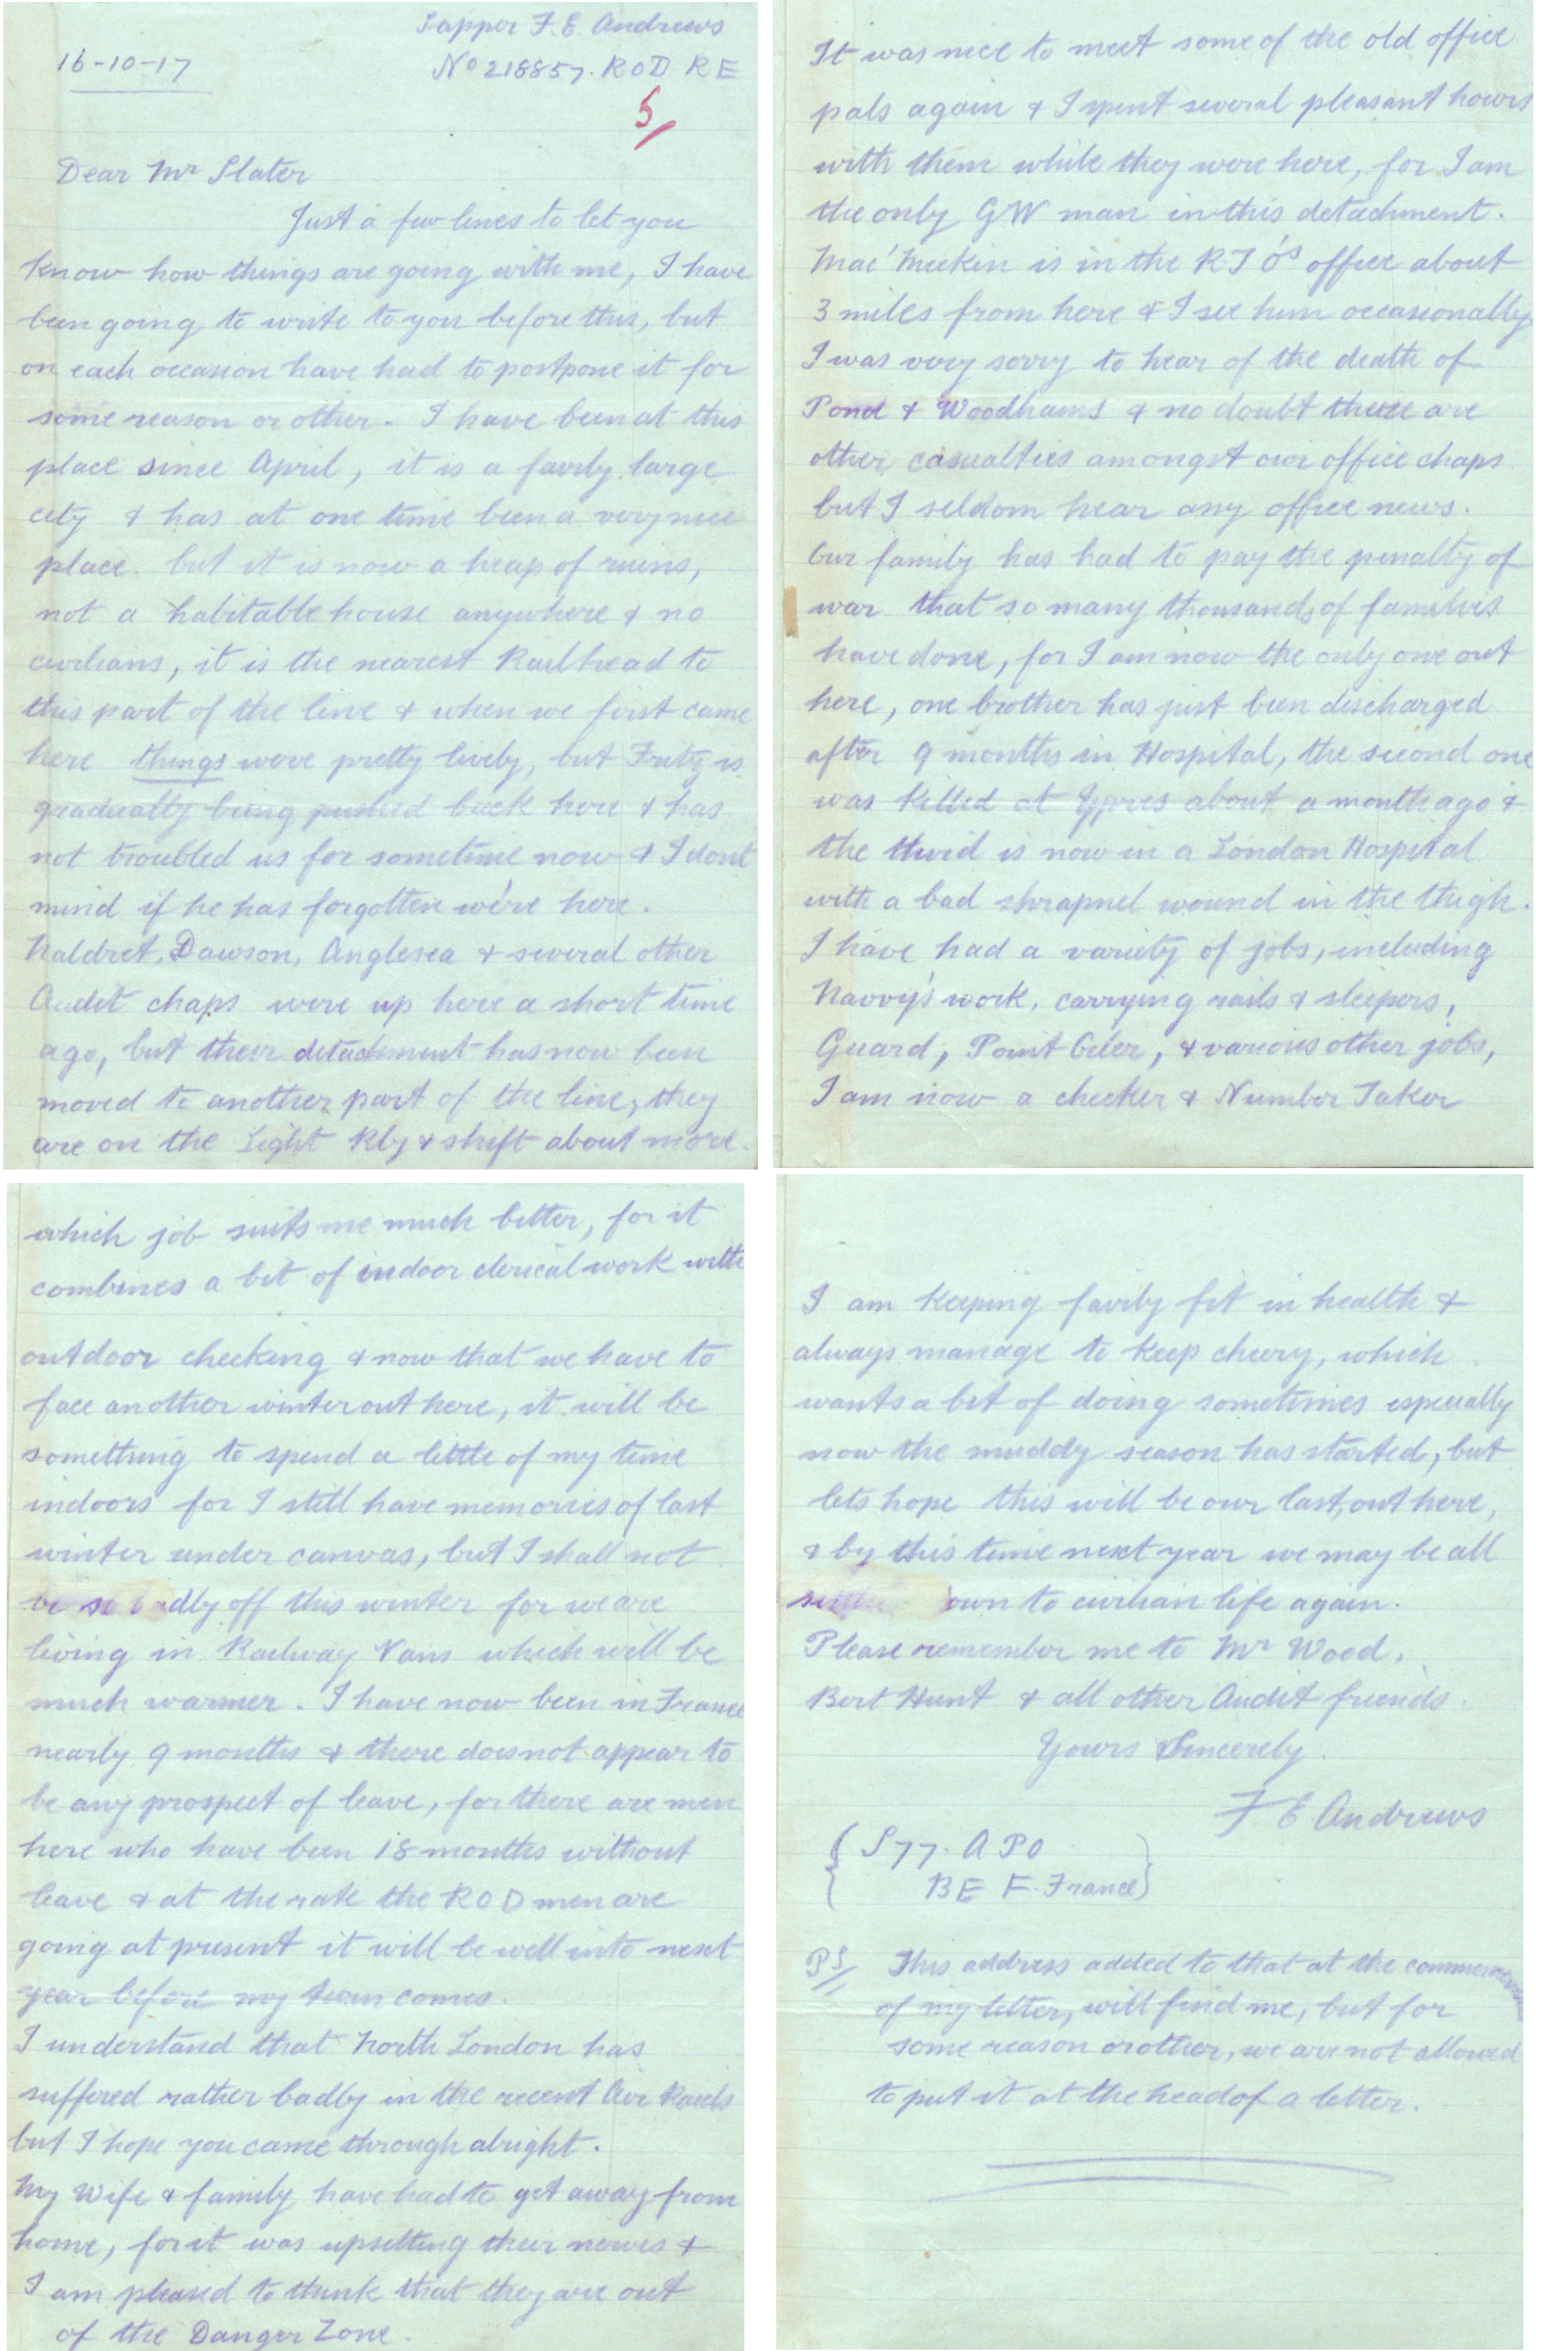 Sapper F. E. Andrews
16-10-17
No 218857. R O D R E
5/
Dear Mr Slater
Just a few lines to let you
know how things are going with me, I have
been going to write to you before this, but
on each occasion have had to postpone it for
some reason or other. I have been at this
place since April, it is a fairly large
city & has at one time been a very nice
place but it is now a heap of ruins,
not a habitable house anywhere & no
civilians, it is the nearest Railhead to
this part of the line & when we first came
here things were pretty lively, but Fritz is
gradually being pushed back here & has
not troubled us for sometime now & I dont
mind if he has forgotten we're here.
Naldret, Dawson, Anglesea & several other
Audit chaps were up here a short time
ago, but their detachment has now been
moved to another part of the line, they
are on the Light Rly & shift about more.
It was nice to meet some of the old office
pals again & I spent several pleasant hours
with them while they were here, for I am
the only GW man in this detachment.
Mac'Meekin is in the R T O's office about
3 miles from here & I see him occasionally
I was very sorry to hear of the death of
Pond & Woodhams & no doubt there are
other casualties amongst our office chaps
but I seldom hear any office news.
Our family has had to pay the penalty of
war that so many thousands of families
have done, for I am now the only one out
here, one brother has just been discharged
after 9 months in Hospital, the second one
was killed at Ypres about a month ago &
the third is now in a London Hospital
with a bad shrapnel wound in the thigh.
I have had a variety of jobs, including
Navvy's work, carrying rails & sleepers,
Guard, Point Oiler, & various other jobs,
I am now a checker & Number Taker
which job suits me much better, for it
combines a bit of indoor clerical work with
outdoor checking & now that we have to
face another winter out here, it will be
something to spend a little of my time
indoors for I still have memories of last
winter under canvas, but I shall not
be so badly off this winter for we are
living in Railway Vans which will be
much warmer. I have now been in France
nearly 9 months & there does not appear to
be any prospect of leave, for there are men
here who have been 18 months without
leave & at the rate the R O D men are
going at present it will be well into next
year before my turn comes.
I understand that North London has
suffered rather badly in the recent Air Raids
but I hope you came through alright.
My Wife & family have had to get away from
home, for it was upsetting their nerves &
I am pleased to think that they are out
of the Danger Zone.
I am keeping fairly fit in health &
always manage to keep cheery, which
wants a bit of doing sometimes especially
now the muddy season has started, but
lets hope this will be our last, out here,
& by this time next year we may be all
own to civilian life again.
Please remember me to Mr Wood,
Bert Hunt & all other Audit friends.
Yours Sincerely.
F E Andrews
S 77. A P O
B E F. France
PS This address added to that at the
of my letter, will find me, but for
some reason or other, we are not allowed
to put it at the head of a letter.